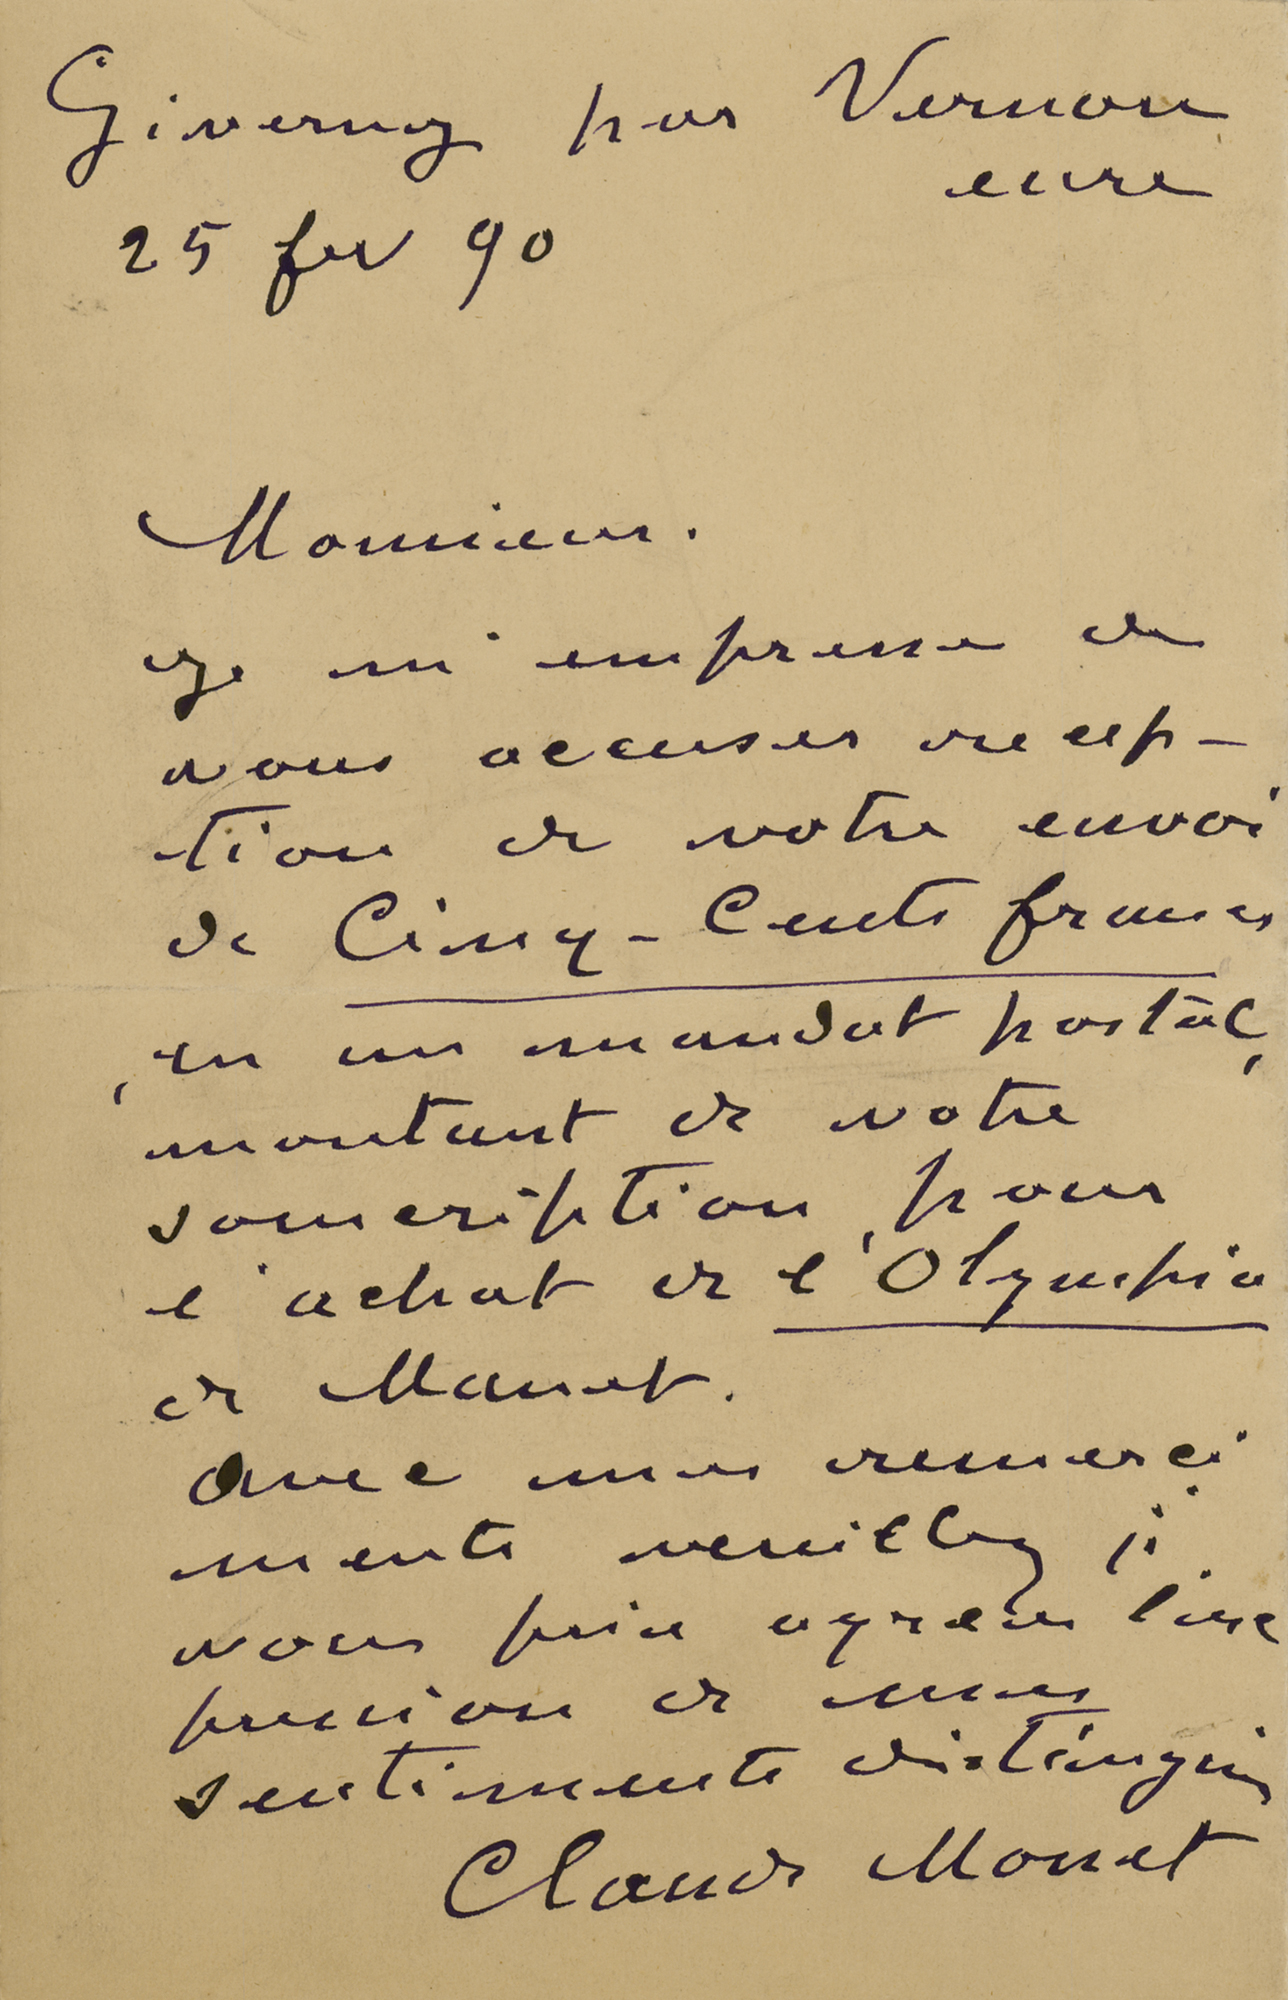 Giverny par Vernon
eure
25 fev 90
Monsieur.
Je m'empresse de
vous accuser recep-
tion de votre envoi
de Cinq-Cents francs
en un mandat postal,
montant de votre
souscription, pour
l'achat de l'Olympia
de Manet.
Avec mes remerci
ments veuillez je
vous prie agréer l'ex
pression de mes
sentiments distingués
Claude Monet